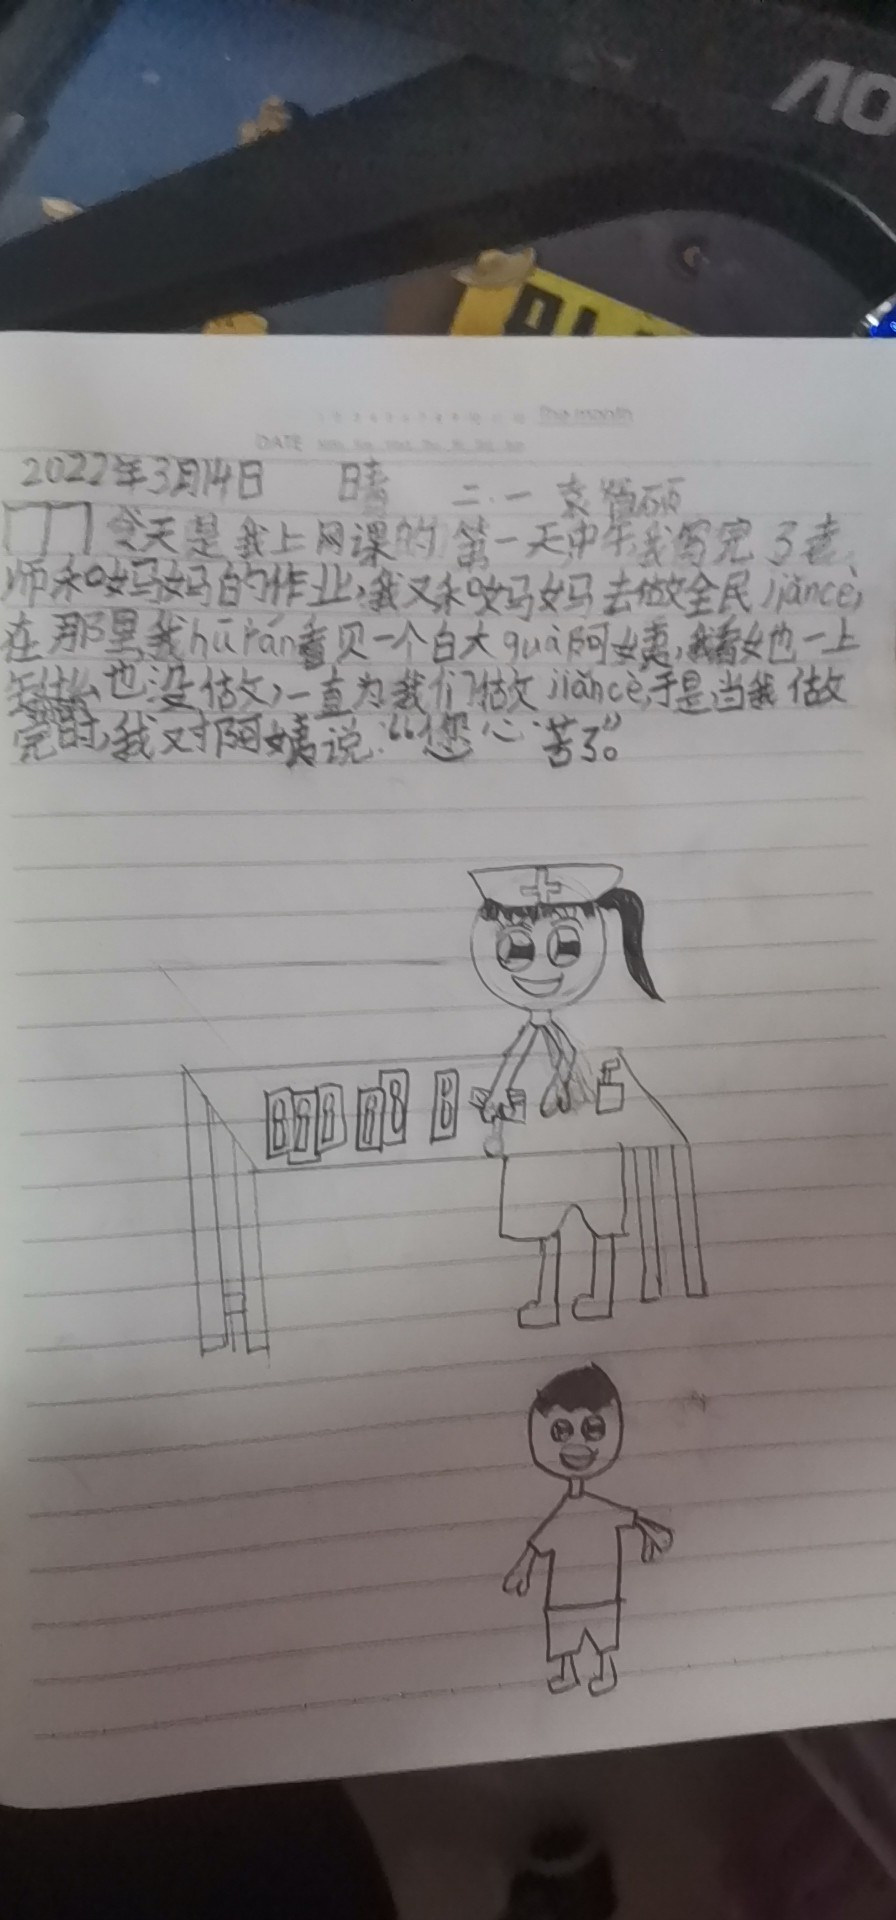 AO
The month
DATE
2022年3月14日 晴 二.一 袁智硕
今天是我上网课的第一天,中午我写完了老
师和妈妈的作业,我又和妈妈去做全民jiǎncè,
在那里,我hūrán看见一个白大guà阿姨,我看她一上
午什么也没做,一直为我们做jiǎncè,于是,当我做
完时,我对阿姨说:“您心苦了”。